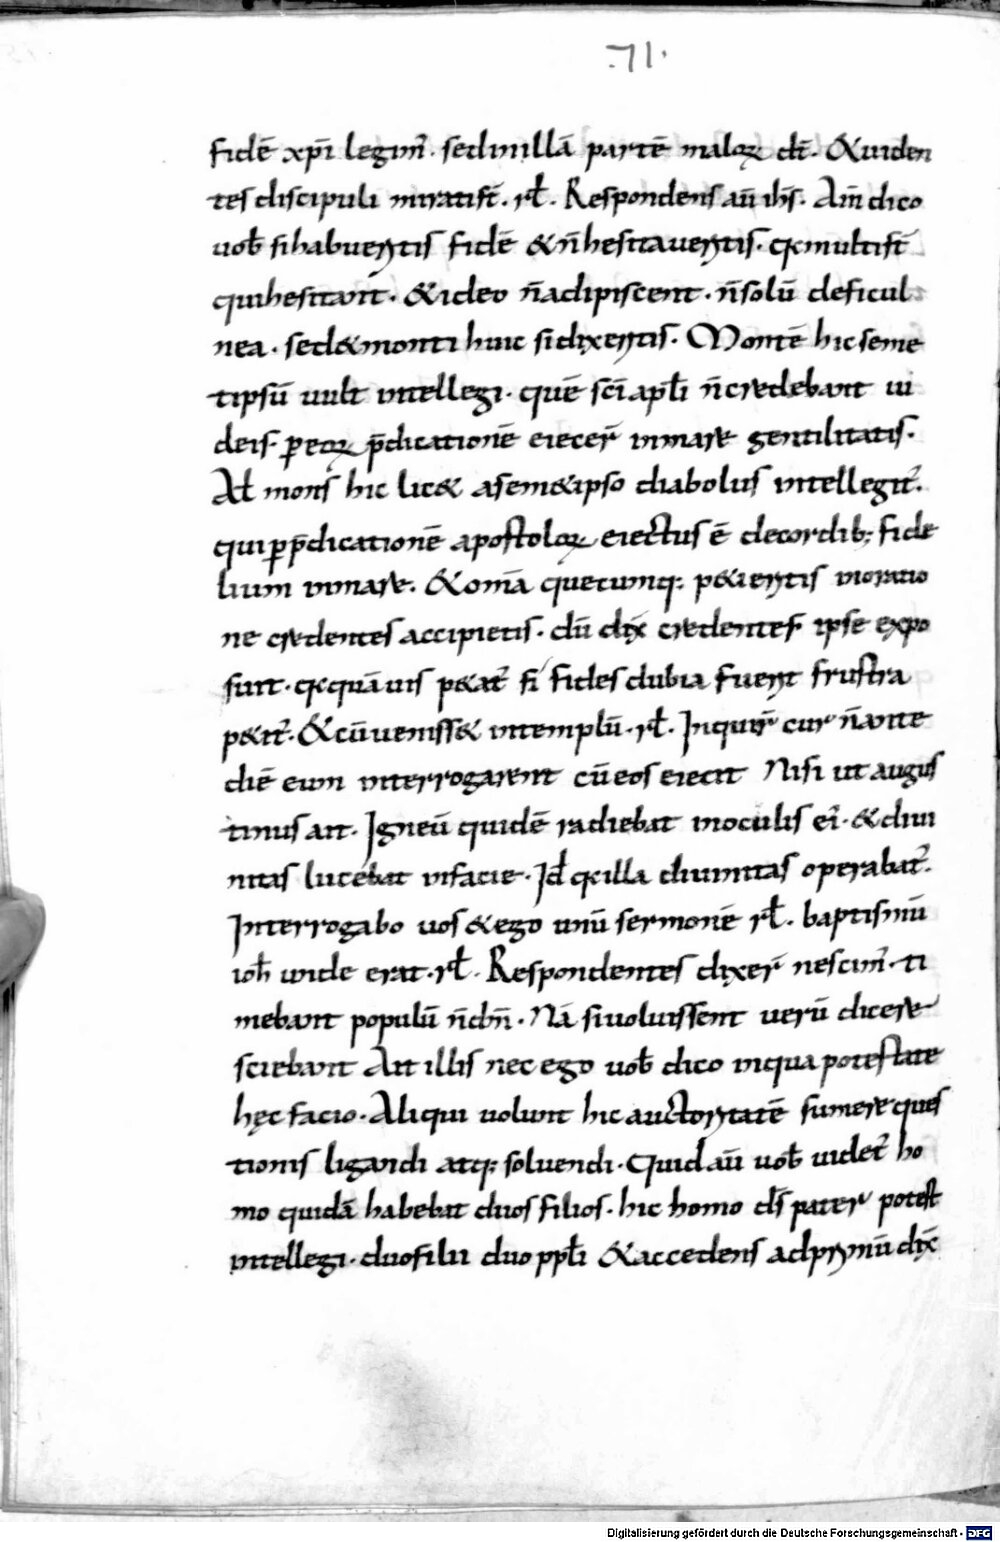 .71.
fidē xp̄i legim̄. sed in illā partē maloꝝ dt̄. & uiden
tes discipuli mirati st̄. rł. Respondens aū ih̄s. Am̄ dico
uob̄ si habueritis fidē & n̄ hesitaueritis. qꝛ multi st̄
qui hesitant. & ideo n̄ adipiscent. n̄ solū de ficul
nea. sed & monti huic si dixeritis. Montē hic seme
tipsū uult intellegi. quē sc̄i apłi n̄ credebant iu
deis. ꝑ eoꝝ p̄dicationē eiecer̄ in mare gentilitatis.
At mons hic lic& a sem&ipso diabolus intellegit̄.
qui ꝑ p̄dicationē apostoloꝝ eiectus ē de cordib; fide
lium in mare. & om̄a quecumq; p&ieritis in oratio
ne credentes accipietis. dū dix̄ credentes ipse expo
suit. qꝛ quāuis p&at̄ si fides dubia fuerit frustra
p&it̄. & cū ueniss& in templū. rł. Inquir̄ cur n̄ ante
diē eum interrogarent cū eos eiecit Nisi ut augus
tinus ait. Igneū quidē radiebat in oculis ei᷒. & diui
nitas lucebat in facie. Id qꝛ illa diuinitas operabat̄.
Interrogabo uos & ego unū sermonē rł. baptismū
ioh̄ unde erat. rł. Respondentes dixer̄ nescim̄. ti
mebant populū n̄ dn̄̄. Nā si uoluissent uerū dicere
sciebant Ait illis nec ego uob̄ dico in qua potestate
hęc facio. Aliqui uolunt hic auctoritatē sumere ques
tionis ligandi atq; soluendi. Quid aū uob̄ uidet̄ ho
mo quidā habebat duos filios. hic homo ds̄ pater potest
intellegi. duo filii duo ppłi & accedens ad primū dix̄
Digitalisierung gefördert durch die Deutsche Forschungsgemeinschaft - DFG